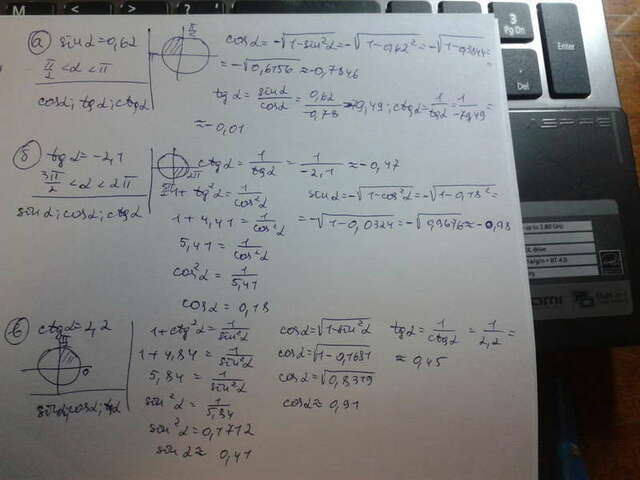 а) sinα=0,62
π/2 <α<π
cosα; tgα; ctgα
π/2
cosα=-√1-sin²α=-√1-0,62²=-√1-0,3844=
=-√0,6156≈-0,7846
tgα=sinα/cosα=0,62/-0,78
; ctgα=1/tgα=1/-79,49=
≈-0,01
б) tgα=-2,1
3π/2 <α<2π
sinα; cosα; ctgα
2π
ctgα=1/tgα=1/-2,1≈-0,47
1+tg²α=1/cos²α
1+4,41=1/cos²α
5,41=1/cos²α
cos²α=1/5,41
cosα=0,18
sinα=-√1-cos²α=-√1-0,18²=
=-√1-0,0324=-√0,9676≈-0,98
в) ctgα=2,2
0
sinα; cosα; tgα
1+ctg²α=1/sin²α
1+4,84=1/sin²α
5,84=1/sin²α
sin²α=1/5,84
sin²α=0,1712
sinα≈0,41
cosα=√1-sin²α
cosα=√1-0,1681
cosα=√0,8319
cosα≈0,91
tgα=1/ctgα=1/2,2=
≈0,45
3
Pg Dn
Enter
Del
ASPIRE